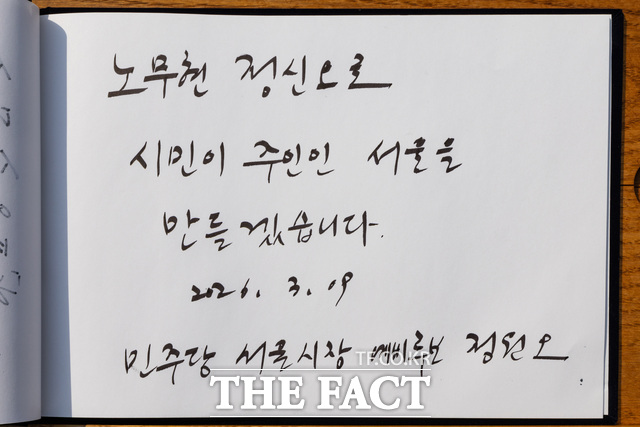 노무현 정신으로
시민이 주인인 서울을
만들겠습니다.
2026. 3. 09
민주당 서울시장 예비후보 정원오
TF.co.kr
THE FACT